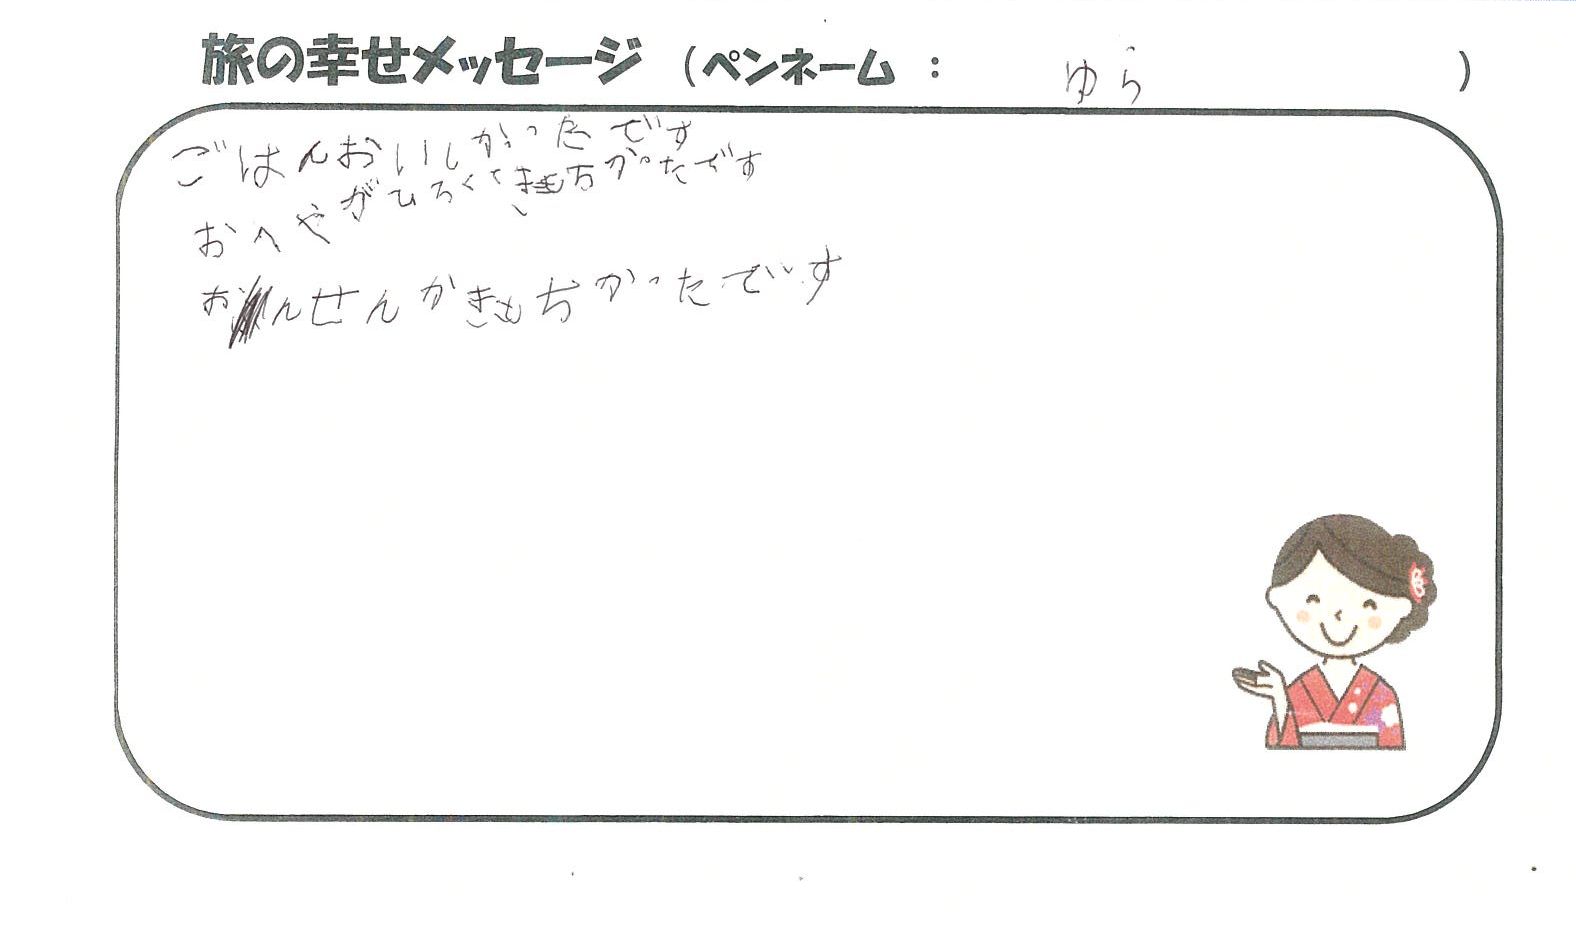 旅の幸せメッセージ (ペンネーム : ゆら )
ごはんおいしかったです
おへやがひろくてきもちかったです
おんせんかきもちかったです